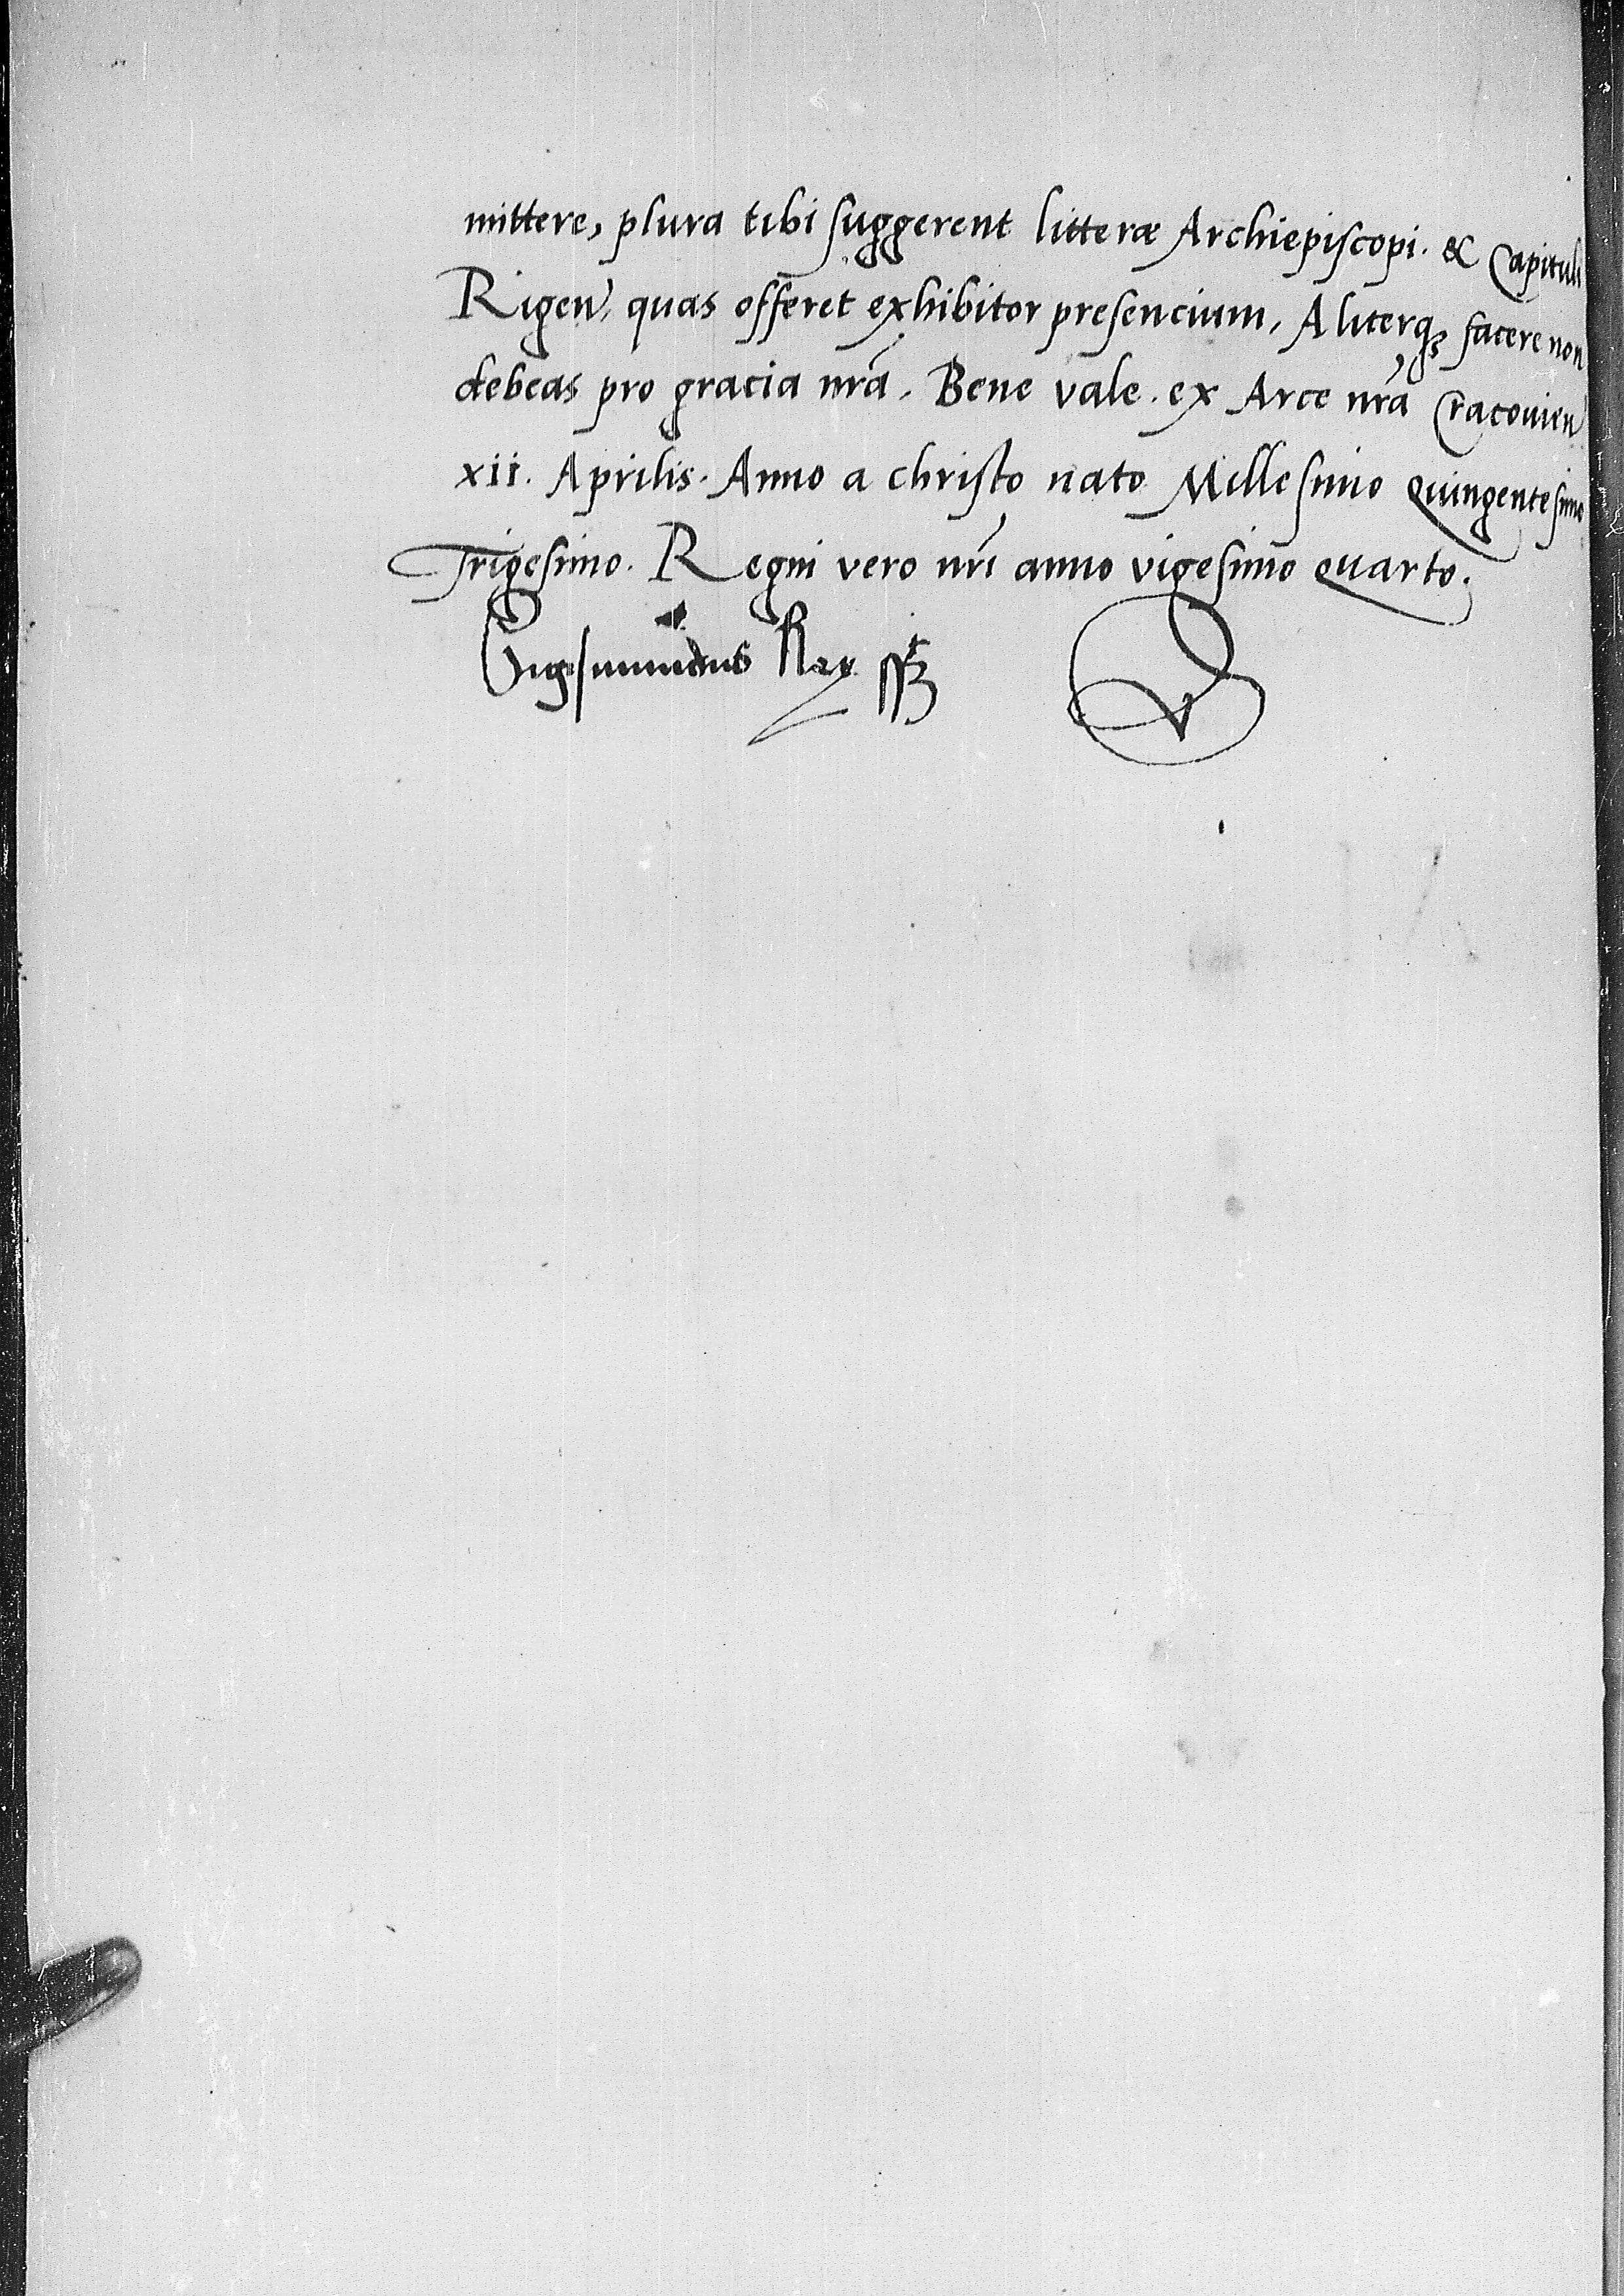 mittere, plura tibi suggerent litteræ Archiepiscopi. & Capituli
Rigen̄. quas offeret exhibitor presencium, Aliterqꝫ facere non
debeas pro gracia nr̄a. Bene vale. ex Arce nr̄a Cracouien̄
xii. Aprilis. Anno a Christo nato Millesimo Quingentesimo
Trigesimo. Regni vero nr̄i anno vigesimo quarto.
Sigismundus Rex